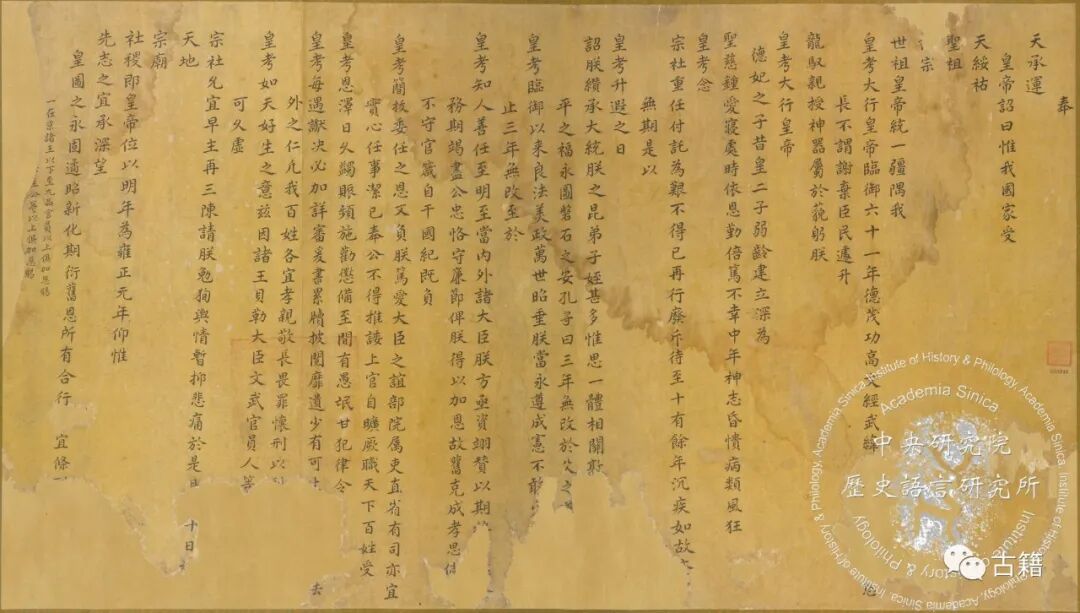 奉
天承運
皇帝詔曰惟我國家受
天綏祐
聖祖
宗
世祖皇帝統一疆隅我
皇考大行皇帝臨御六十一年德茂功高文經武緯
長不謂謝棄臣民遽升
龍馭親授神器屬於藐躬朕
皇考大行皇帝
德妃之子昔皇二子弱齡建立深為
聖慈鍾愛寢處時依恩勤倍篤不幸中年神志昏憒病類風狂
皇考念
宗社重任付託為艱不得已再行廢斥待至十有餘年沉疾如故
無期是以
皇考升遐之日
詔朕纘承大統朕之昆弟子姪甚多惟思一體相關敦
平之福永固磐石之安孔子曰三年無改於父之
皇考臨御以来良法美政萬世昭垂朕當永遵成憲不敢
止三年無改至於
皇考知人善任至明至當內外諸大臣朕方亟資翊贊以期
務期竭盡公忠恪守廉節俾朕得以加恩故舊克成孝思
不守官箴自干國紀既負
皇考簡拔委任之恩又負朕篤愛大臣之誼部院屬吏直省有司亦宜
實心任事潔己奉公不得推諉上官自曠厥職天下百姓受
皇考恩澤日久蠲賑頻施勸懲備至間有愚氓甘犯律令
皇考每遇讞決必加詳審爰書累牘披閱靡遺少有可 去
外之仁凡我百姓各宜孝親敬長畏罪懷刑以
皇考如天好生之意兹因諸王貝勒大臣文武官員人等
可久虛
宗社允宜早主再三陳請朕勉狥輿情暫抑悲痛於是 十日
天地
宗廟
社稷即皇帝位以明年為雍正元年仰惟
先志之宜承深望
皇圖之永固遹昭新化期衍舊恩所有合行 宜條
一在京諸王以下至九品官員以上俱加恩賜
公等以上俱加恩賜
中央研究院
歷史語言研究所
Academia Sinica
Institute of History & Philology, Academia Sinica
古籍